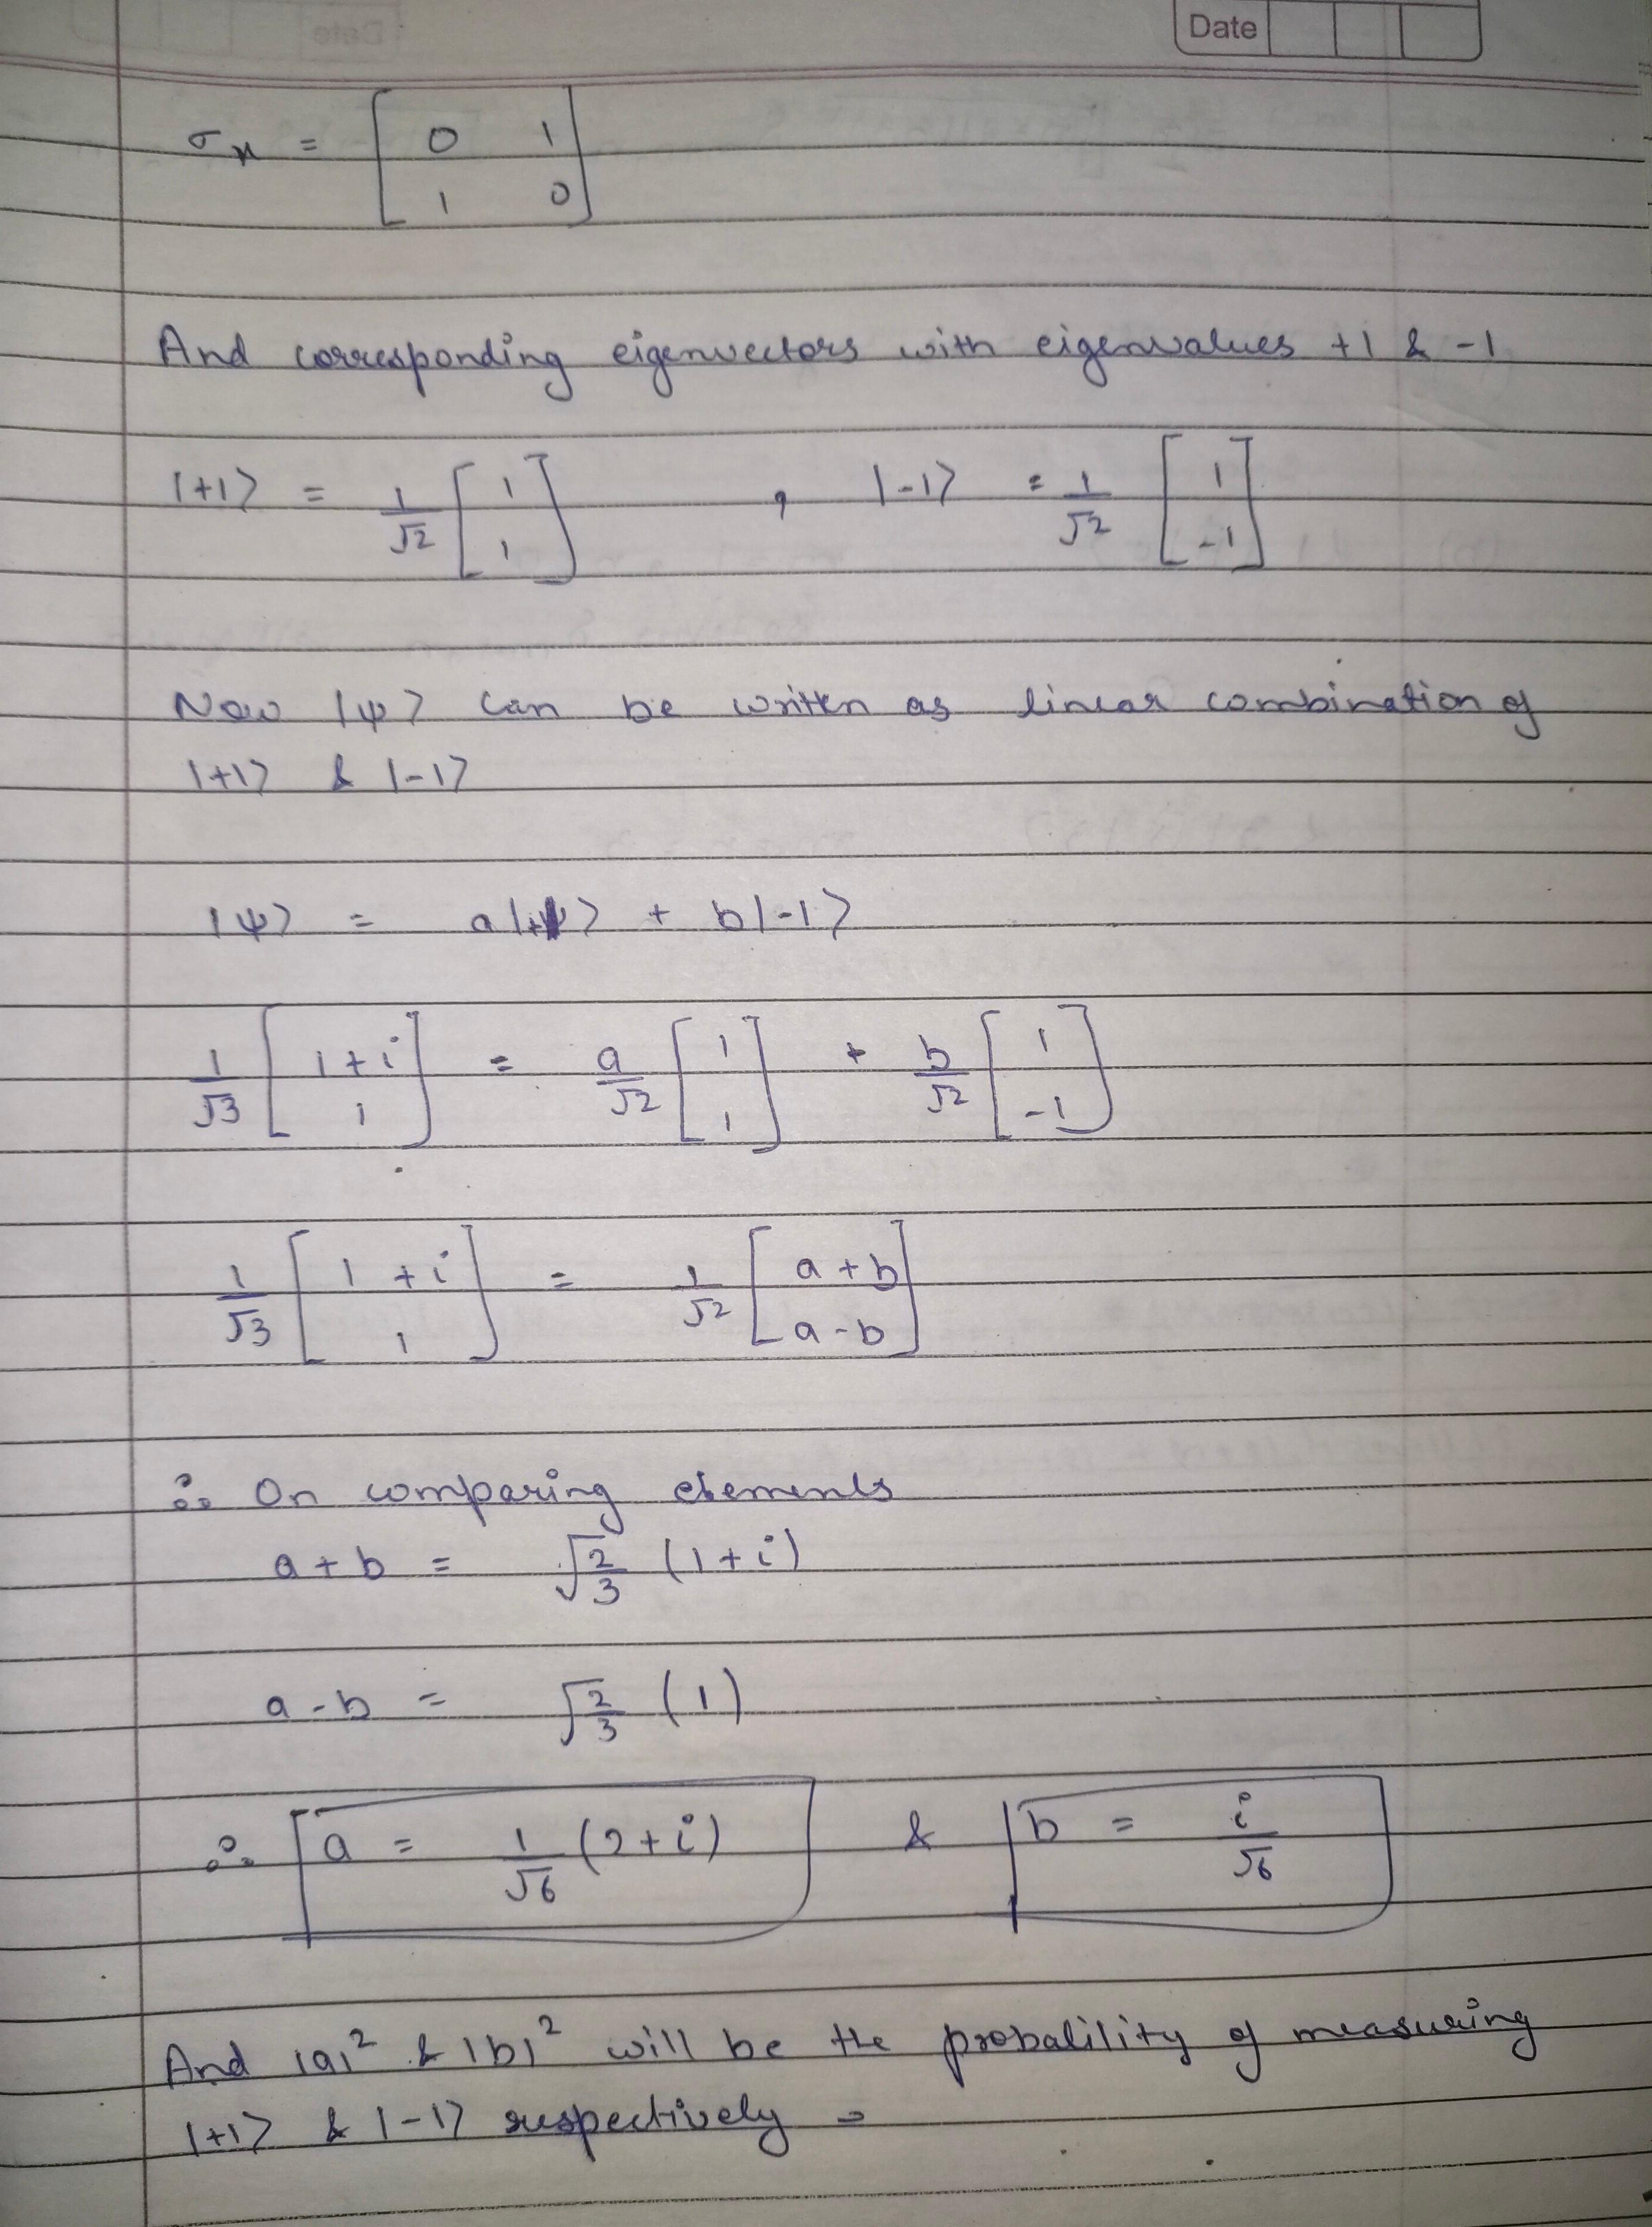 Date
σx = [ 0 1
1 0 ]
And corresponding eigenvectors with eigenvalues +1 & -1
|+1⟩ = 1/√2 [ 1 1 ] , |-1⟩ = 1/√2 [ 1 -1 ]
Now |ψ⟩ can be written as linear combination of
|+1⟩ & |-1⟩
|ψ⟩ = a|+1⟩ + b|-1⟩
1/√3 [ 1+i 1 ] = a/√2 [ 1 1 ] + b/√2 [ 1 -1 ]
1/√3 [ 1+i 1 ] = 1/√2 [ a+b a-b ]
∴ On comparing elements
a + b = √2/3 (1+i)
a - b = √2/3 (1)
∴ a = 1/√6 (2+i) & b = i/√6
And |a|² & |b|² will be the probalility of measuring
|+1⟩ & |-1⟩ respectively =